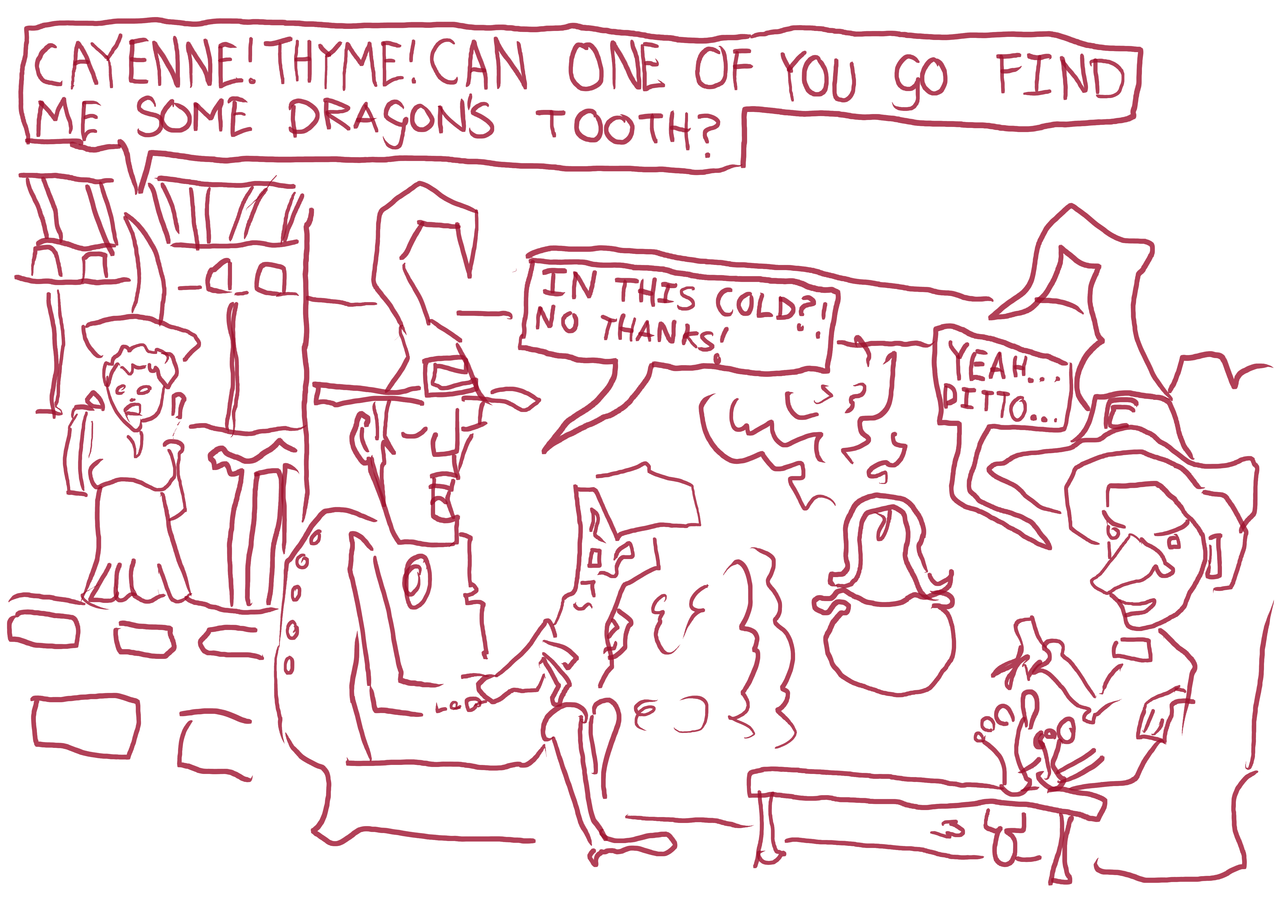 CAYENNE! THYME! CAN ONE OF YOU GO FIND
ME SOME DRAGON'S TOOTH?
IN THIS COLD?!
NO THANKS!
YEAH...
DITTO...